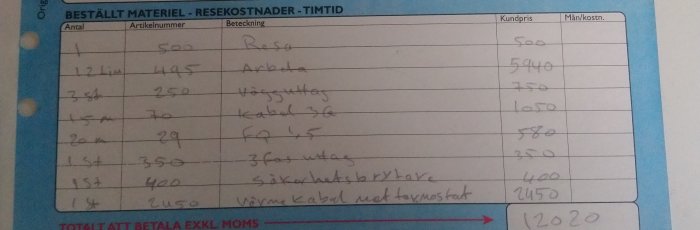 Orig
BESTÄLLT MATERIEL - RESEKOSTNADER - TIMTID
Antal Artikelnummer Beteckning Kundpris Mån/kostn.
1 500 Resa 500
12 tim 495 Arbete 5940
3 st 250 Vägguttag 750
15 m 70 Kabel 3G 1050
20 m 29 FQ 1,5 580
1 st 350 3fas uttag 350
1 st 400 Säkerhetsbrytare 400
1 st 2450 Värmekabel met termostat 2450
TOTALT ATT BETALA EXKL MOMS 12020